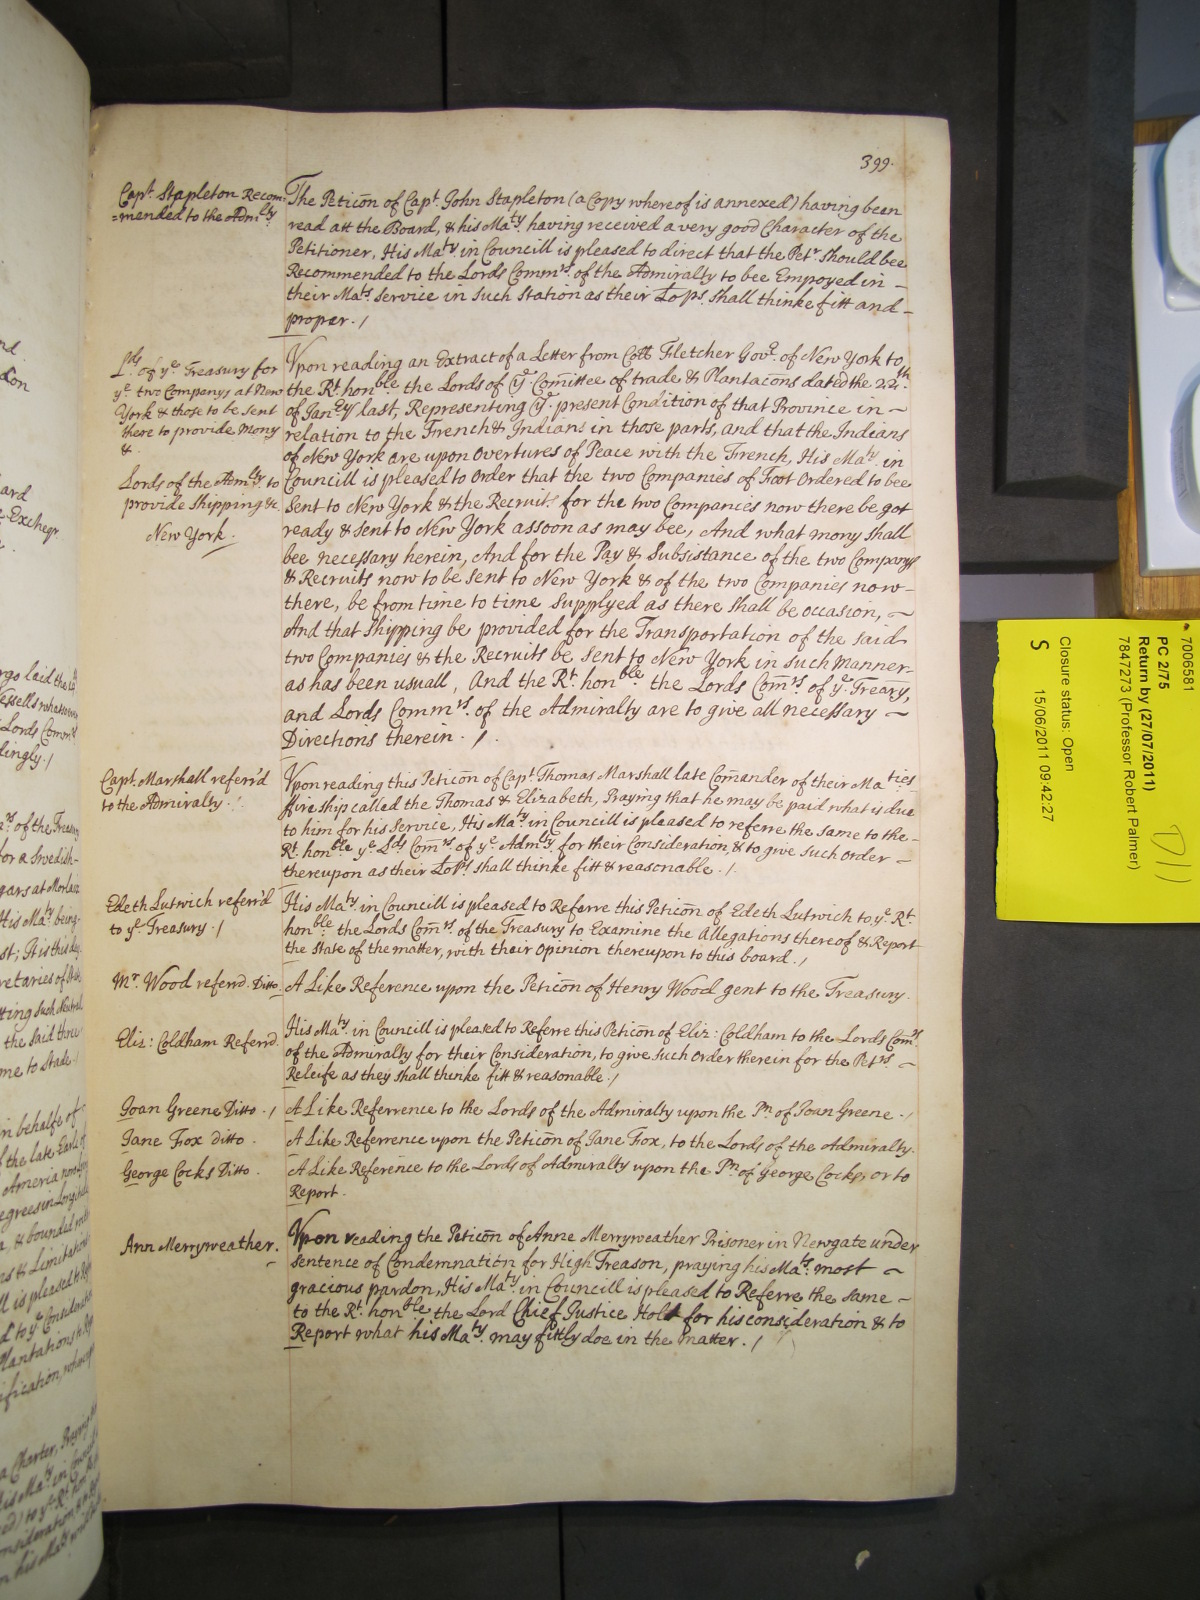 399.
Capt. Stapleton Recom-
=mended to the Adm.lty
The Peticōn of Capt. John Stapleton (a Copy whereof is annexed) having been
read att the Board, & his Ma.ty having received a very good Character of the
Petitioner, His Ma.ty in Councill is pleased to direct that the Pet.r should bee
Recommended to the Lords Comm.rs of the Admiralty to bee Empoyed in –
their Ma.ts Service in such Station as their Lo.ps shall thinke fitt and –
proper. /
L.ds of y.e Treasury for
y.e two Companys at New
York & those to be sent
there to provide mony
&.
Lords of the Adm.lty to
provide Shipping &c
New York.
Vpon reading an Extract of a Letter from Coll Fletcher Gov.r of New York to
the R.t hon.ble the Lords of y.e Com̄ittee of trade & Plantacōns dated the 22.th
of Jan.ry last, Representing y.e present Condition of that Province in ~
relation to the French & Indians in those parts, and that the Indians
of New York are upon Overtures of Peace with the French, His Ma.ty in
Councill is pleased to Order that the two Companies of Foot Ordered to bee
sent to New York & the Recruits for the two Companies now there be got
ready & sent to New York assoon as may bee, And what mony shall
bee necessary herein, And for the Pay & Subsistance of the two Companys
& Recruits now to be sent to New York & of the two Companies now –
there, be from time to time supplyed as there shall be occasion, ~
And that shipping be provided for the Transportation of the said
two Companies & the Recruits be sent to New York in such manner –
as has been usuall, And the R.t hon.ble the Lords Com̄.rs of y.e Treāry,
and Lords Comm.rs of the Admiralty are to give all necessary ~
Directions therein. /.
Capt. Marshall referr'd
to the Admiralty.
Vpon reading this Peticōn of Capt. Thomas Marshall late Com̄ander of their Ma.ties
fire ship called the Thomas & Elizabeth, Praying that he may be paid what is due
to him for his Service, His Ma.ty in Councill is pleased to referre the same to the –
R.t hon.ble y.e L.ds Com̄.rs of y.e Adm.lty for their Consideration, & to give such Order –
thereupon as their Lo.ps shall thinke fitt & reasonable. /.
Edeth Lutwich referr'd
to y.e Treasury. /
His Ma.ty in Councill is pleased to Referre this Peticōn of Edeth Lutwich to y.e R.t
hon.ble the Lords Com̄.rs of the Treasury to Examine the Allegations thereof & Report
the State of the matter, with their Opinion thereupon to this board. /
M.r Wood referr'd. Ditto
A Like Reference upon the Peticōn of Henry Wood gent to the Treasury.
Eliz: Coldham Referrd.
His Ma.ty in Councill is pleased to Referre this Peticōn of Eliz: Coldham to the Lords Com̄.rs
of the Admiralty for their Consideration, to give such Order therein for the Pet.rs –
Releife as they shall thinke fitt & reasonable. /
Joan Greene Ditto. /
A Like Referrence to the Lords of the Admiralty upon the P.n of Joan Greene. /
Jane Fox ditto.
A Like Referrence upon the Peticōn of Jane Fox, to the Lords of the Admiralty.
George Cocks Ditto.
A Like Reference to the Lords of Admiralty upon the P.n of George Cocks, or to
Report.
Ann Merryweather.
Vpon reading the Peticōn of Anne Merryweather Prisoner in Newgate under
sentence of Condemnation for High Treason, praying his Ma.ts most ~
gracious pardon, His Ma.ty in Councill is pleased to Referre the same –
to the R.t hon.ble the Lord Chief Justice Holt for his consideration & to
Report what his Ma.ty may fittly doe in the matter. /
7006581
PC 2/75
Return by (27/07/2011)
7847273 (Professor Robert Palmer)
D11
Closure status: Open
S 15/06/2011 09:42:27